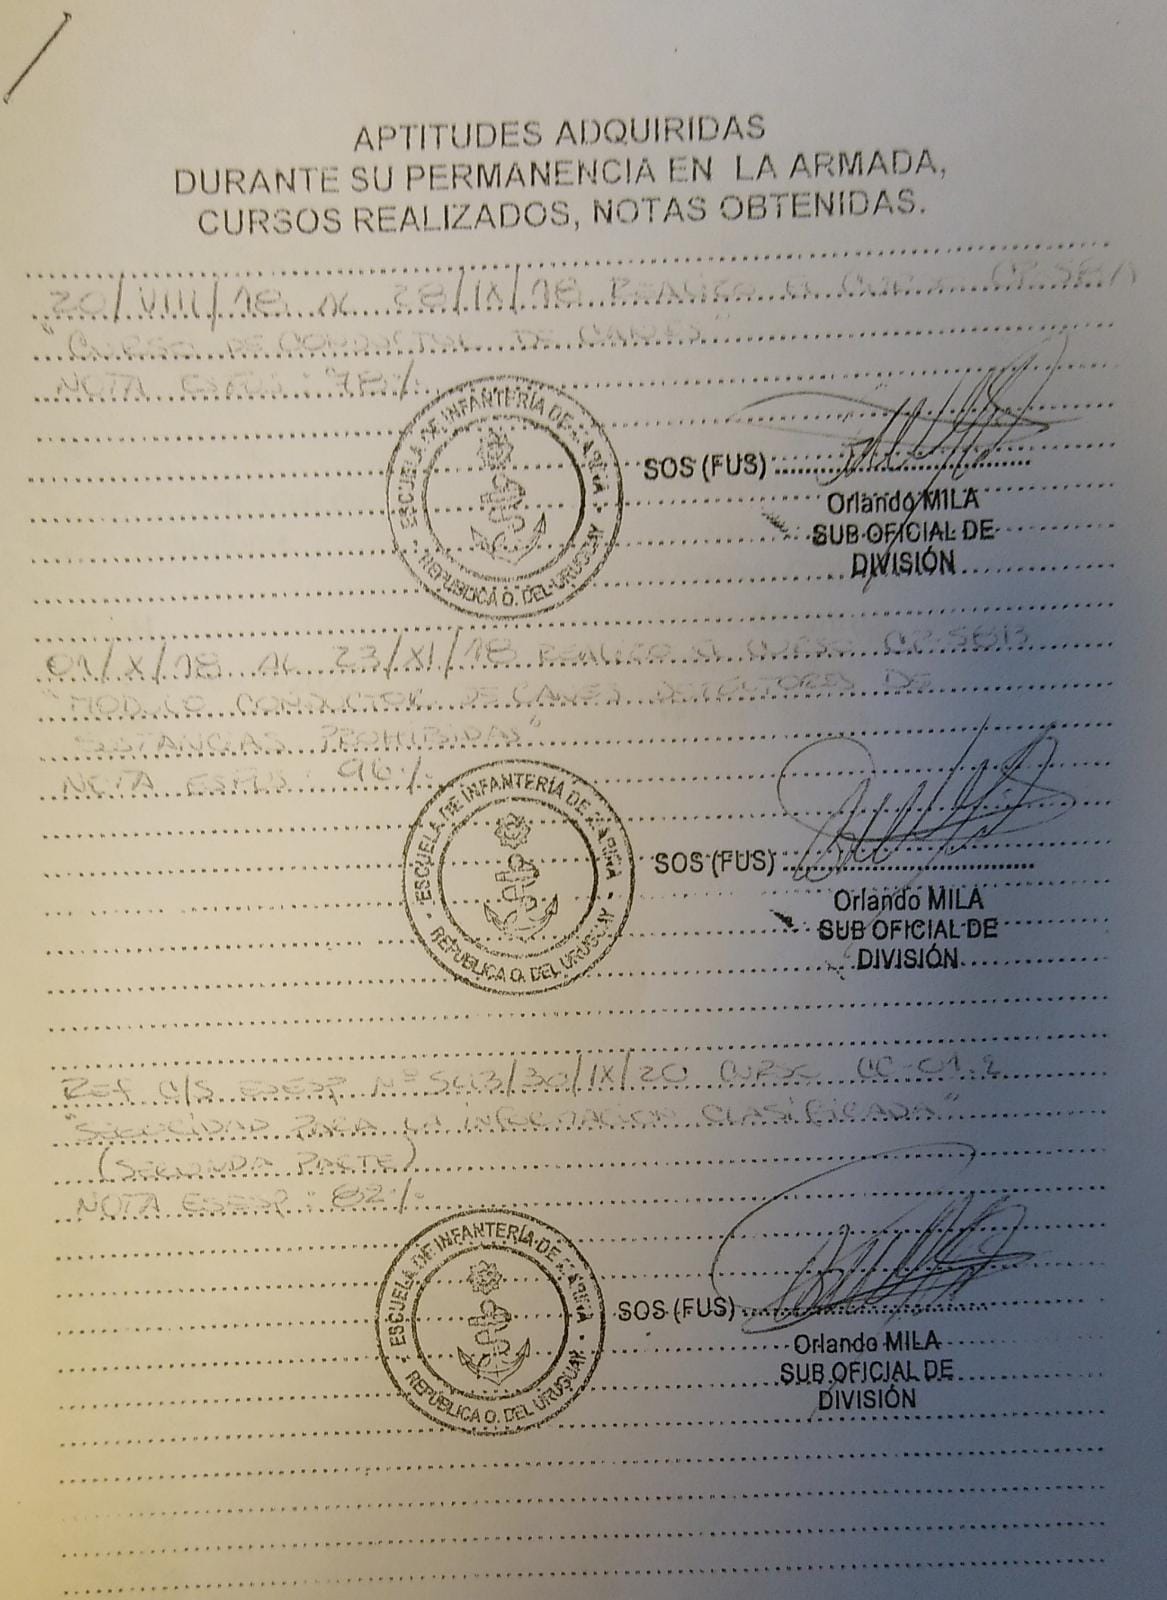 APTITUDES ADQUIRIDAS
DURANTE SU PERMANENCIA EN LA ARMADA,
CURSOS REALIZADOS, NOTAS OBTENIDAS.
20/VIII/18 AL 28/IX/18 REALIZO EL CURSO
"CURSO DE CONDUCTOR DE CANES"
NOTA ESFUS: 78%.
ESCUELA DE INFANTERÍA DE MARINA
REPUBLICA O. DEL URUGUAY
SOS (FUS)
Orlando MILA
SUB OFICIAL DE
DIVISIÓN
01/X/18 AL 23/XI/18 REALIZO EL CURSO
"MODULO CONDUCTOR DE CANES DETECTORES DE
SUSTANCIAS PROHIBIDAS"
NOTA ESFUS: 96%.
ESCUELA DE INFANTERÍA DE MARINA
REPUBLICA O. DEL URUGUAY
SOS (FUS)
Orlando MILA
SUB OFICIAL DE
DIVISIÓN
Ref C/S ESESP Nº 5613/30/IX/20 CURSO CC-01.2
"SEGURIDAD PARA LA INFORMACION CLASIFICADA"
(SEGUNDA PARTE)
NOTA ESESP: 82%.
ESCUELA DE INFANTERÍA DE MARINA
REPUBLICA O. DEL URUGUAY
SOS (FUS)
Orlando MILA
SUB OFICIAL DE
DIVISIÓN